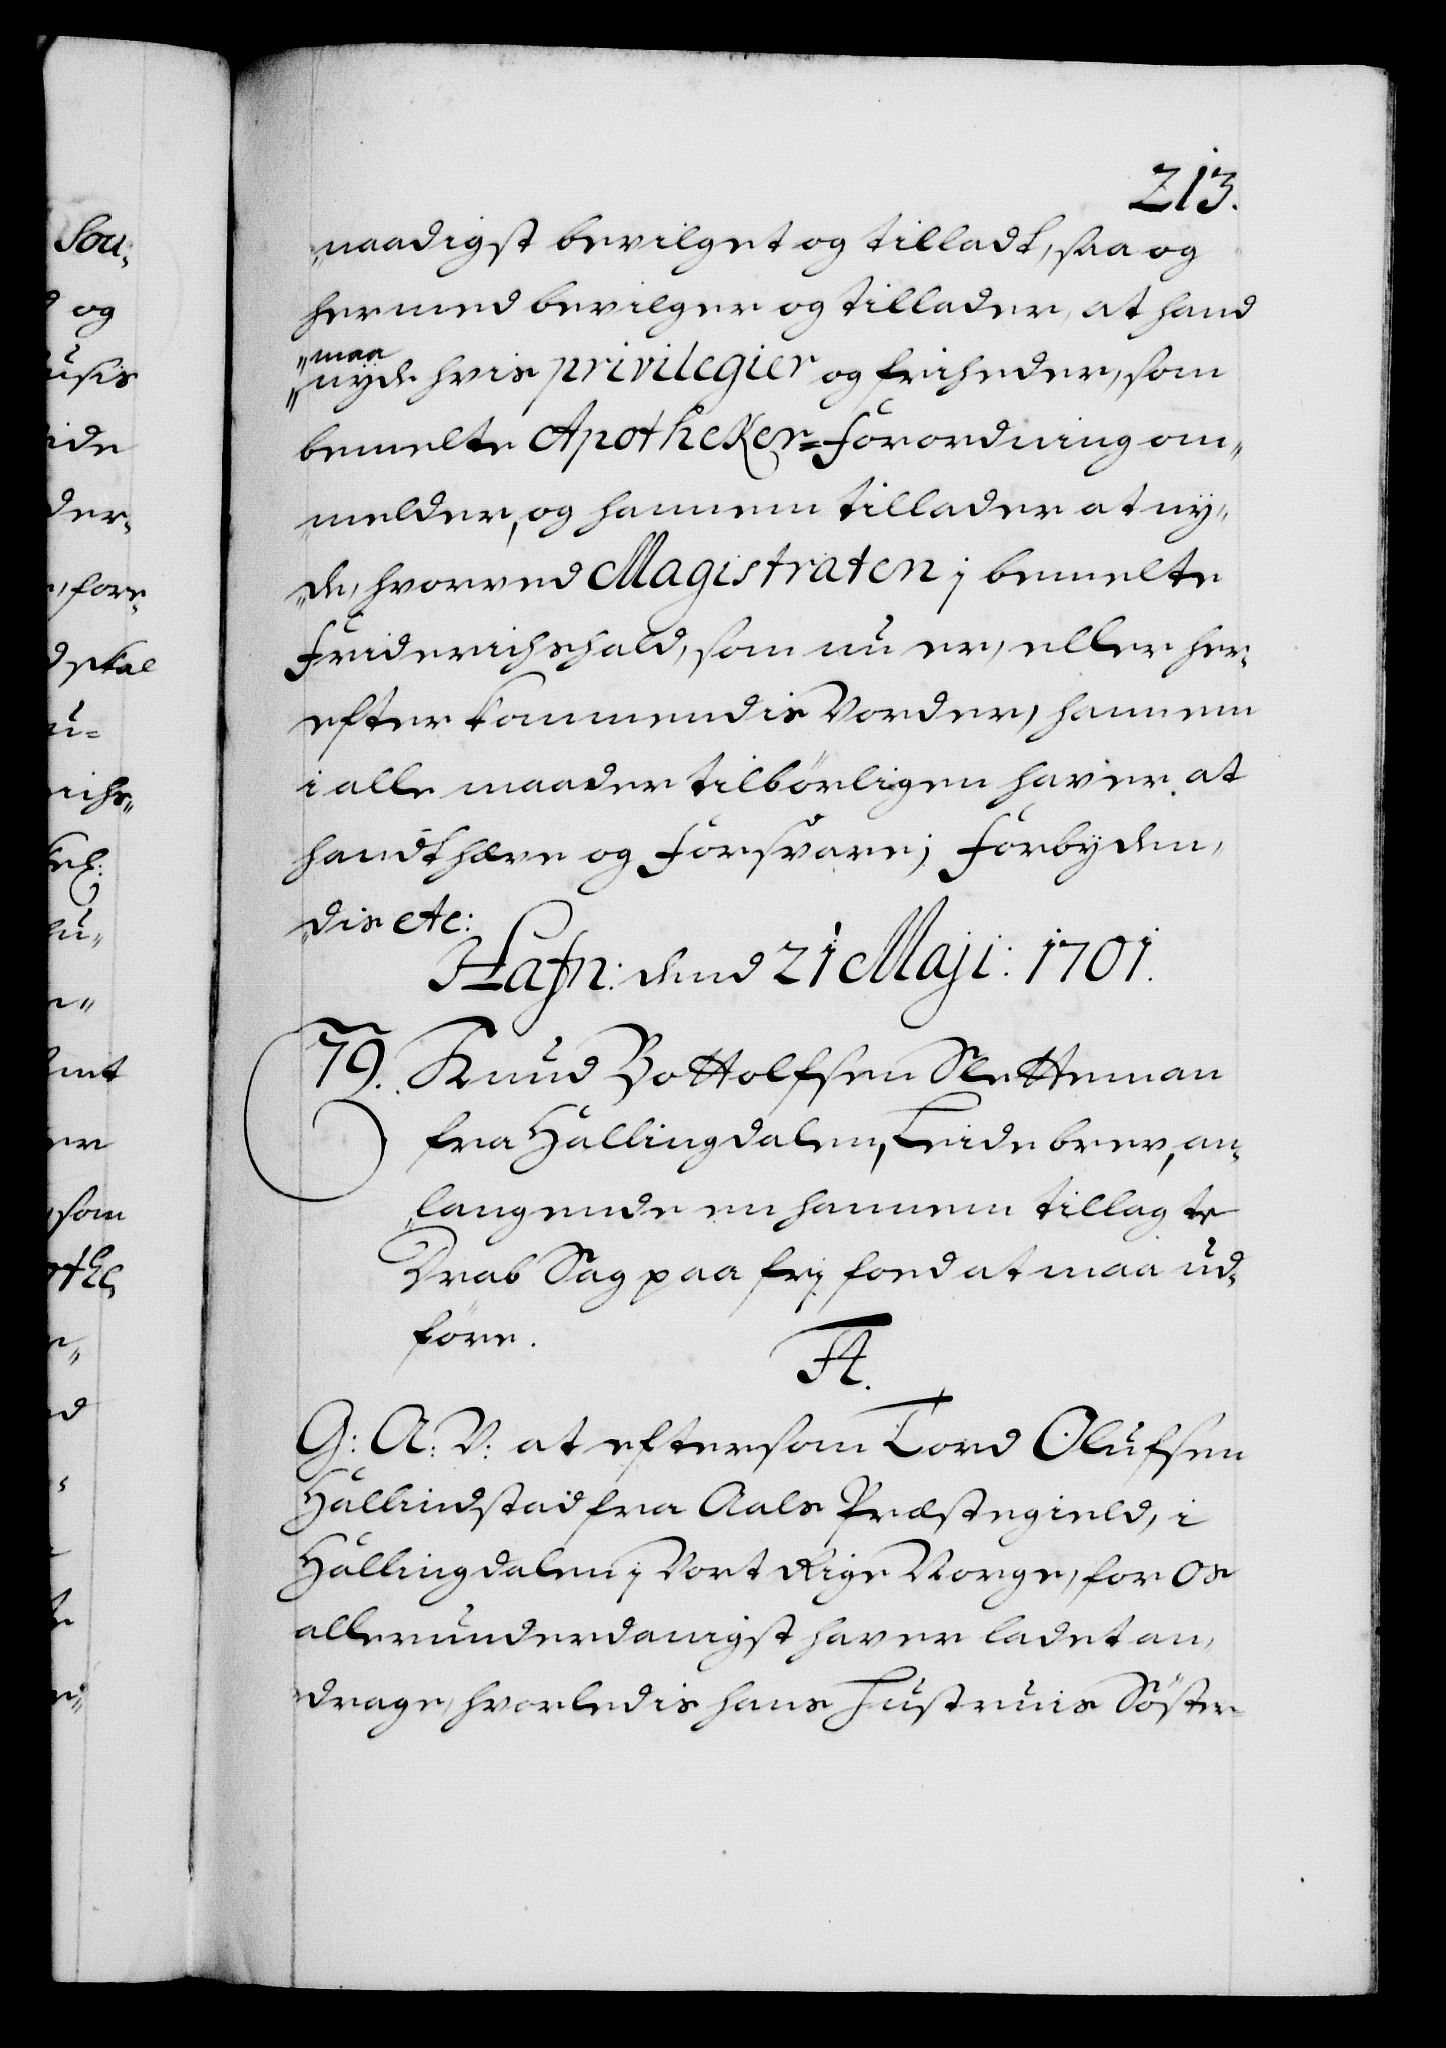 213.
„naadigst bevilget og tilladt, saa og
hermed bevilger og tillader, at hand
„maa
„nyde hvis privilegier og friheder, som
bemelte Apotheker=Forordning om„
„melder, og hannem tillader at ny„
„de, hvorved Magistraten i bemelte
Friderichshald, som nu er, eller her„
efter kommendis Vorder, hannem
i alle maader tilbörligen haver at
handthæve og Forsvare; Forbyden„
„dis etc:
Hafn: dend 21 Maji: 1701.
79. Knud Bottolfsen Sletteman
fra Hallingdalen, Leidebrev, an„
„langende en hannem tillagte
Drab Sag paa fri foed at maa ud„
före.
F4.
G: A: V: at eftersom Tord Olufsen
Hallindstad fra Aals Præstegield, i
Hallingdalen i Vort Rige Norge, for Os
allerunderdanigst haver ladet an„
drage, hvorledis hans Hustruis Söster„
Sou„
og
usis
ide
der„
fore„
d skal
u=
richs„
lu„
e„
mt
er
som
othe„
e„
d